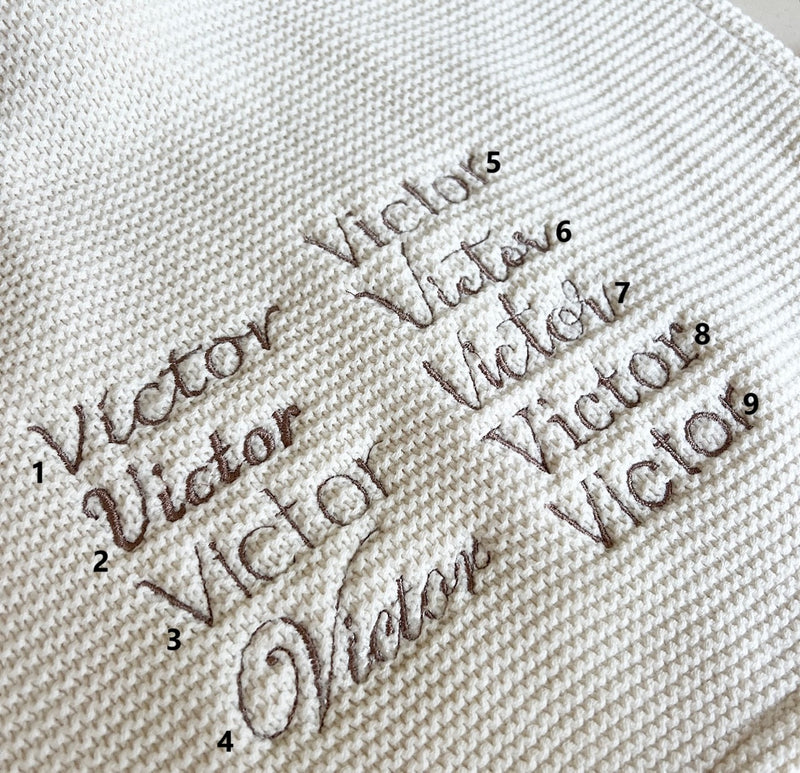 Victor 1
Victor 2
Victor 3
Victor 4
Victor 5
Victor 6
Victor 7
Victor 8
Victor 9